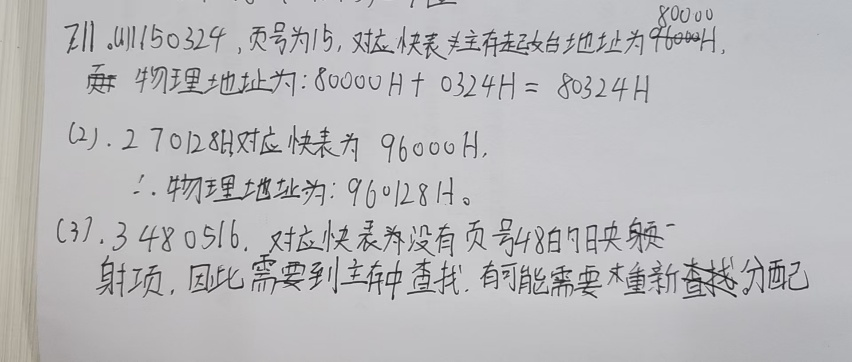 711.(1)150324,页号为15,对应快表主存起始地址为80000H,
物理地址为:80000H+0324H=80324H
(2).270128H对应快表为 96000H,
∴物理地址为:960128H。
(3).3480516,对应快表为没有页号48的映射
射项,因此需要到主存中查找.有可能需要重新分配